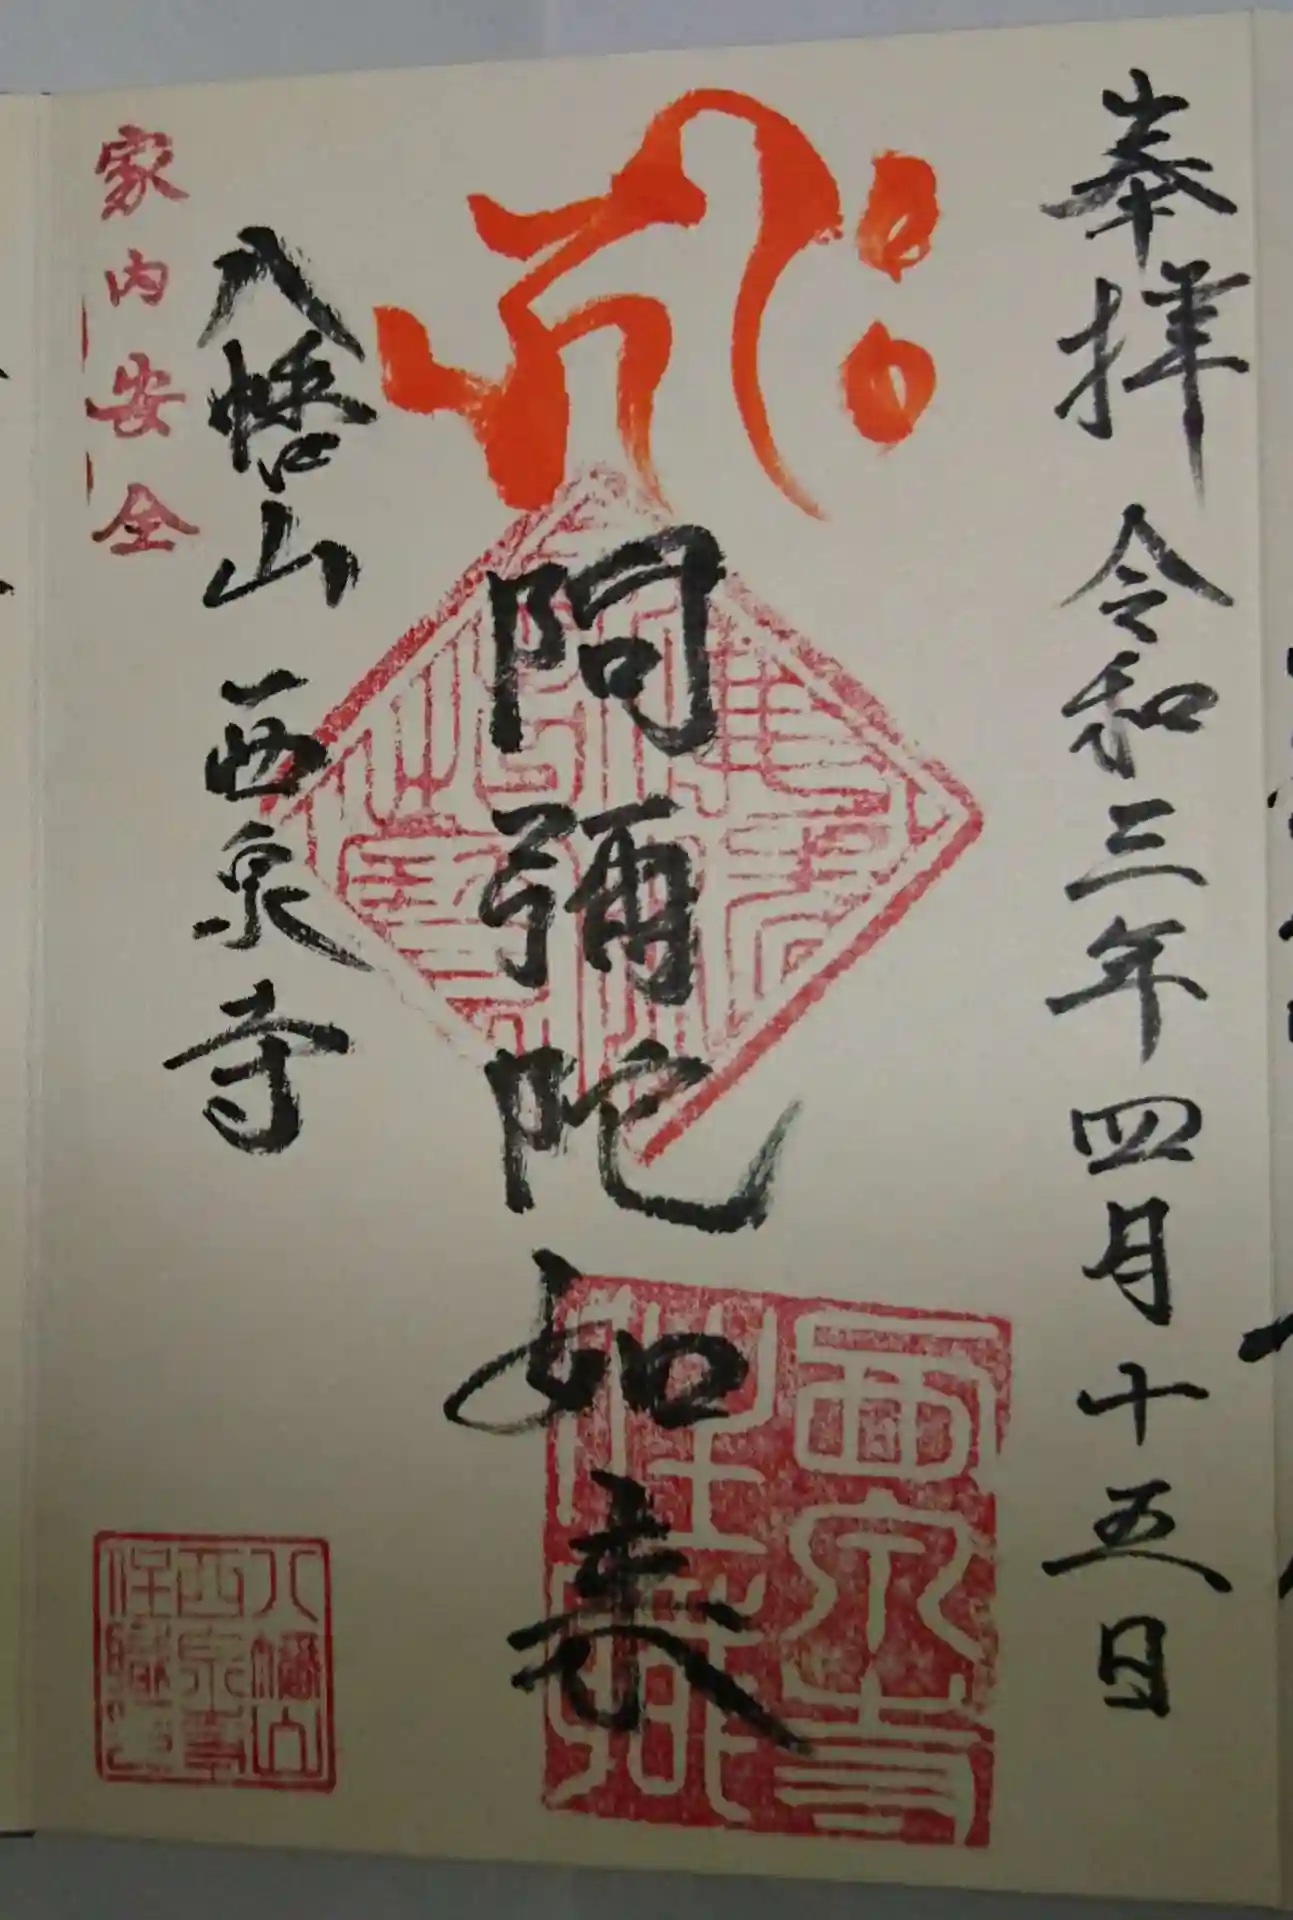 奉拝 令和三年四月十五日
阿彌陀如来
八幡山 西泉寺
家内安全
西泉寺
八幡山
西泉寺
住職